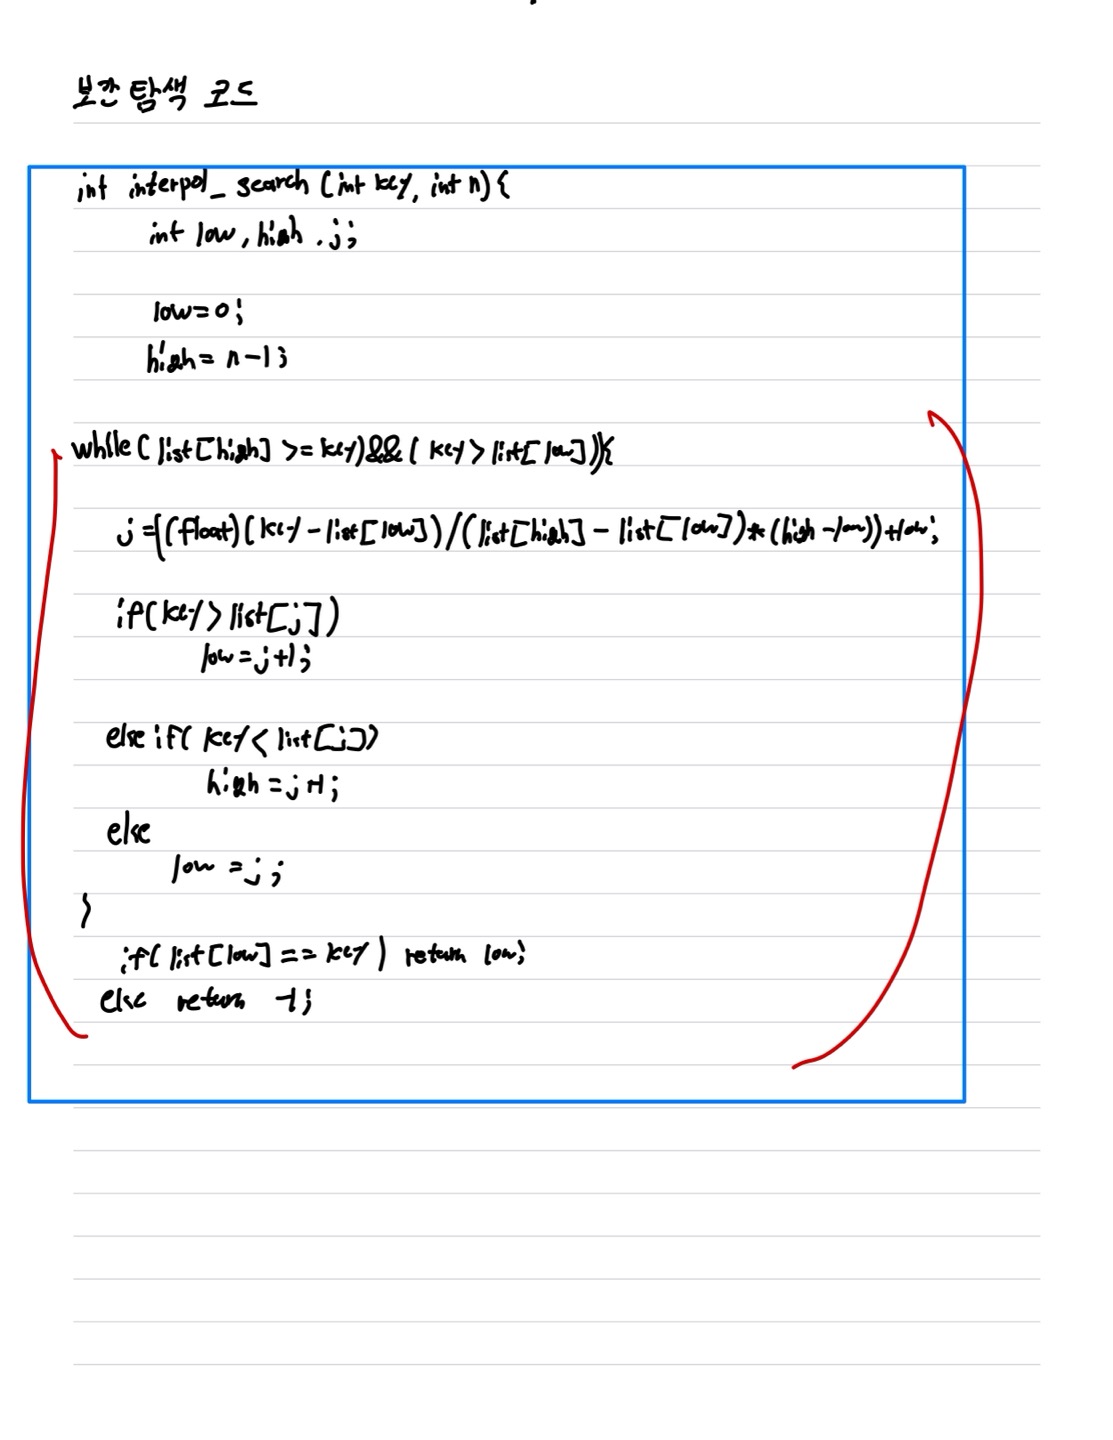 보간 탐색 코드
int interpol_search (int key, int n){
int low, high . j;
low=0;
high= n-1;
while( list[high] >= key)&&( key > list[low])){
j =((float)(key-list[low])/(list[high] - list[low])*(high-low))+low;
if(key> list[j])
low=j+1;
else if( key< list[j])
high =j-1;
else
low =j;
}
if( list[low] == key) return low;
else return -1;